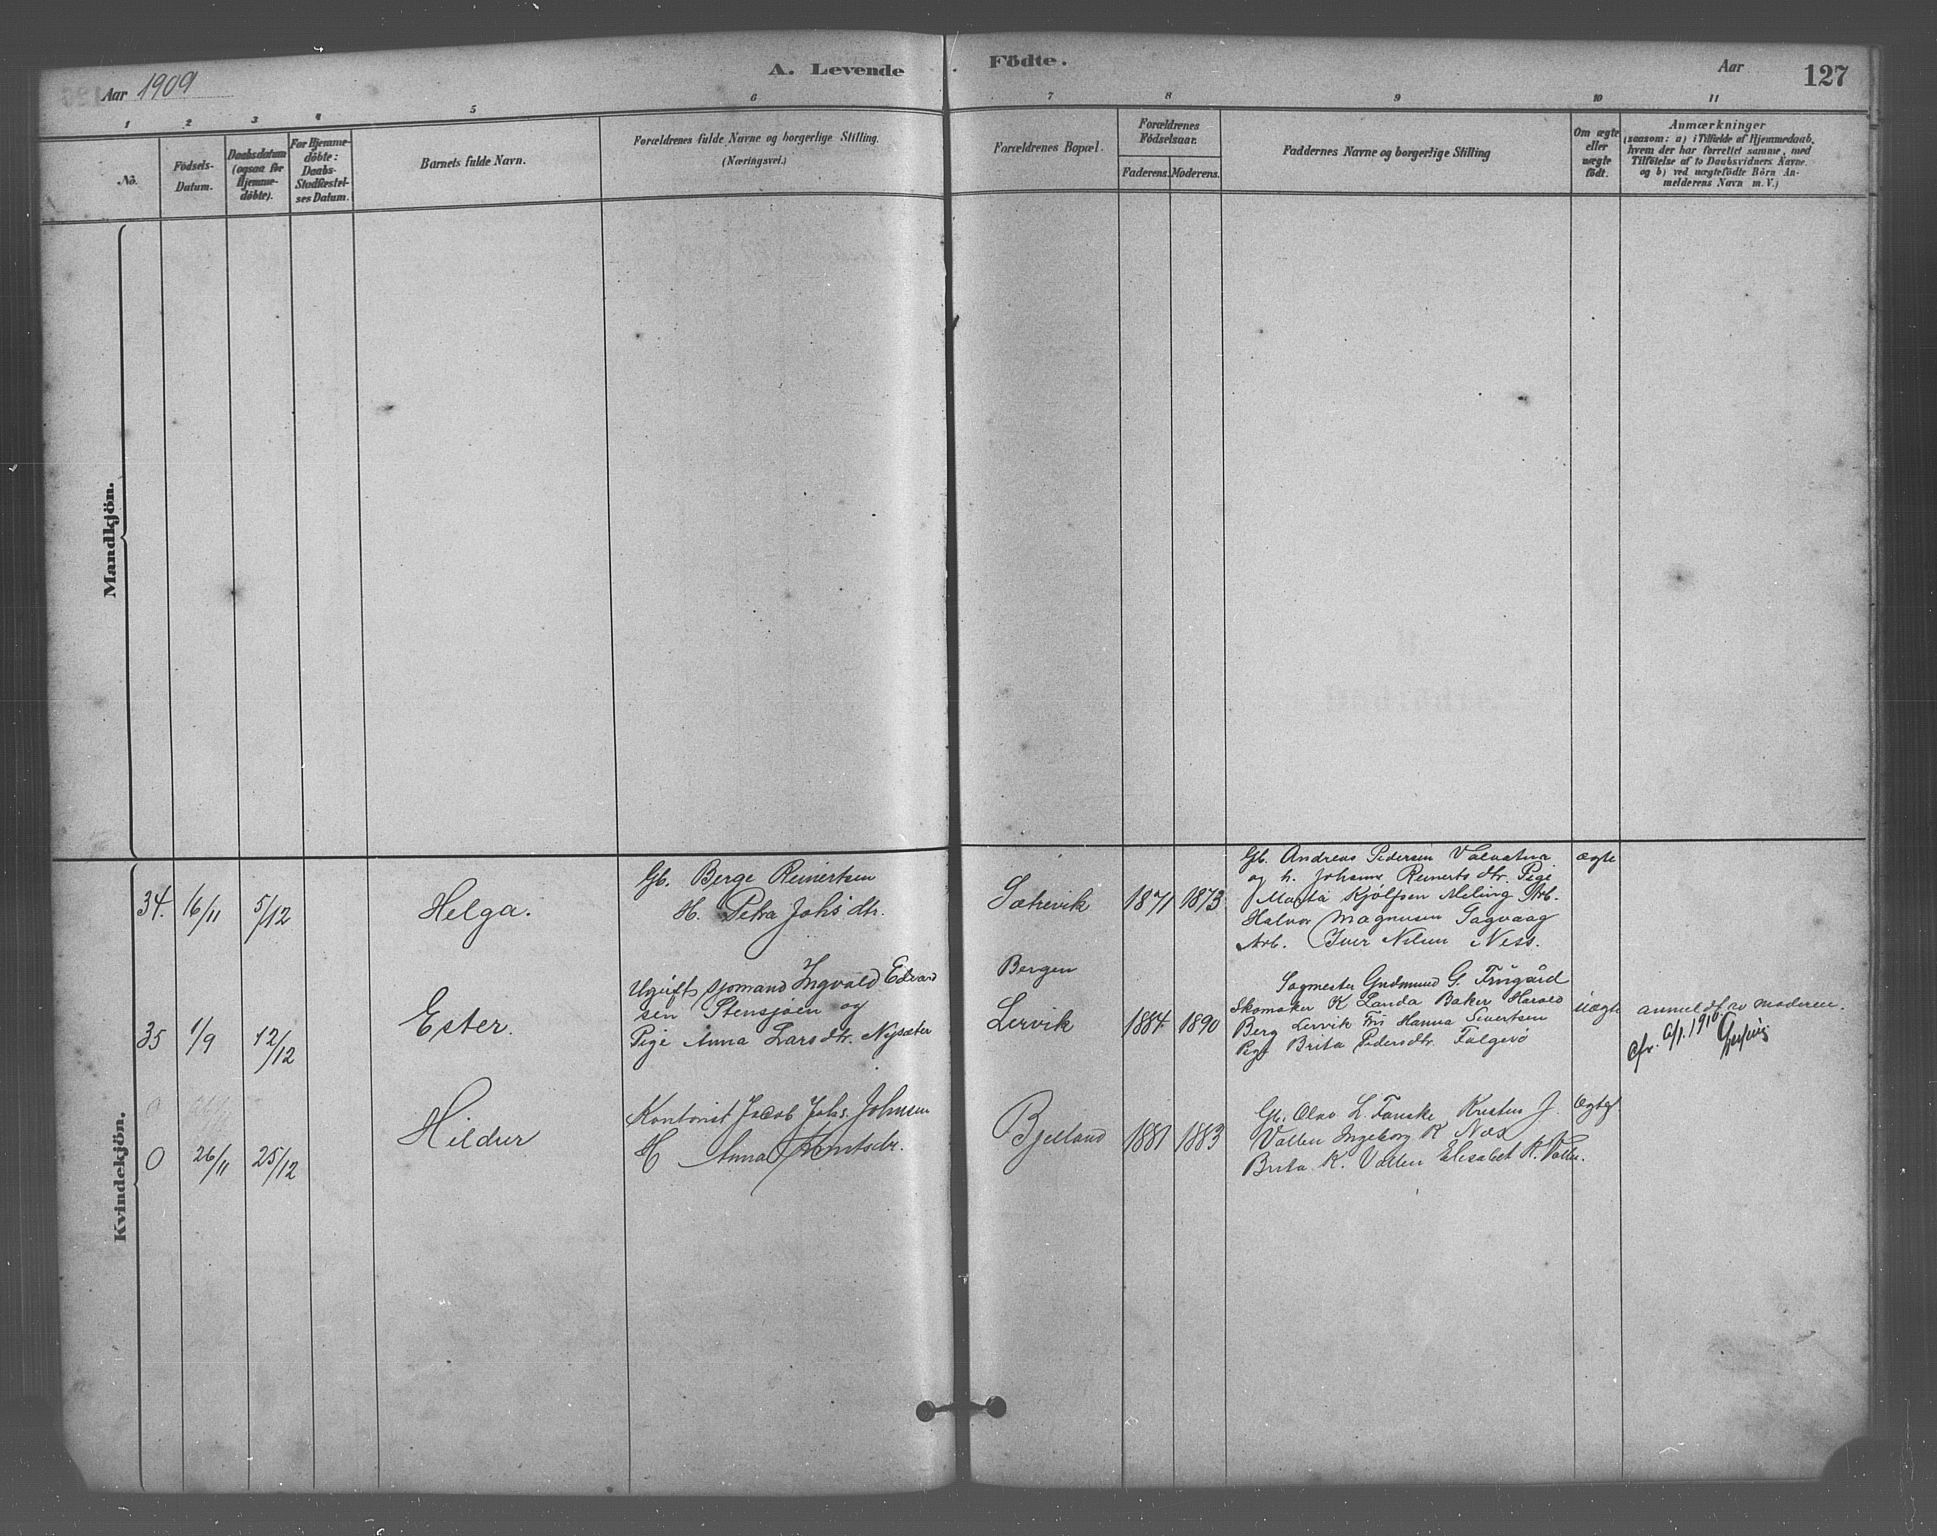 Aar 1909
A. Levende
Födte.
Aar
127
1 2 3 4 5 6 7 8 9 10 11
No.
Födsels-
Datum.
Daabsdatum
(ogsaa for
Hjemme-
döbte).
For Hjemme-
döbte:
Daabs-
Stadfæstel-
ses Datum.
Barnets fulde Navn.
Forældrenes fulde Navne og borgerlige Stilling.
(Næringsvei.)
Forældrenes Bopæl.
Forældrenes
Födselsaar.
Faderens. Moderens.
Faddernes Navne og borgerlige Stilling
Om ægte
eller
uægte
født.
Anmærkninger
(saasom: a) i Tilfælde af Hjemmedaab,
hvem der har forrettet samme, med
Tilföielse af to Daabsvidners Navne.
og b) ved uægtefödte Börn An-
melderens Navn m. V.)
Mandkjön.
Kvindekjön.
34. 16/11 5/12
Helga.
Gb. Berge Reinertsen
H. Petra Johs dtr.
Sætrevik
1871 1873
Gb. Andreas Pedersen Valvatna
og h. Johanne Reinerts dtr. Pige
Marta Kjølfsen Meling Arb.
Halvor Magnusen Sagvaag
Arb. Iver Nilsen Ness.
ægte
35 1/9 12/12
Ester.
Ugift sjømand Ingvald Edvard
sen Stensjøen og
Pige Anna Larsdtr. Nysæter
Bergen
Lervik
1884 1890
Sagmester Gudmund G. Frugård
Skomaker K Landa Baker Harald
Berg Lervik Frs Hanna Sivertsen
Pige Brita Pedersdtr. Falgerø
uægte
anmeldt av moderen.
cfr. 1910
0 26/11 25/12
Hildur
Kontorist Jacob Johs. Johnsen
H Anna Knutsdr.
Bjelland
1881 1883
Gb. Olav L. Fauske Kristen J.
Vallen Ingeborg K Næs
Brita K. Vallen Elisabet K. Vallen.
Ægte